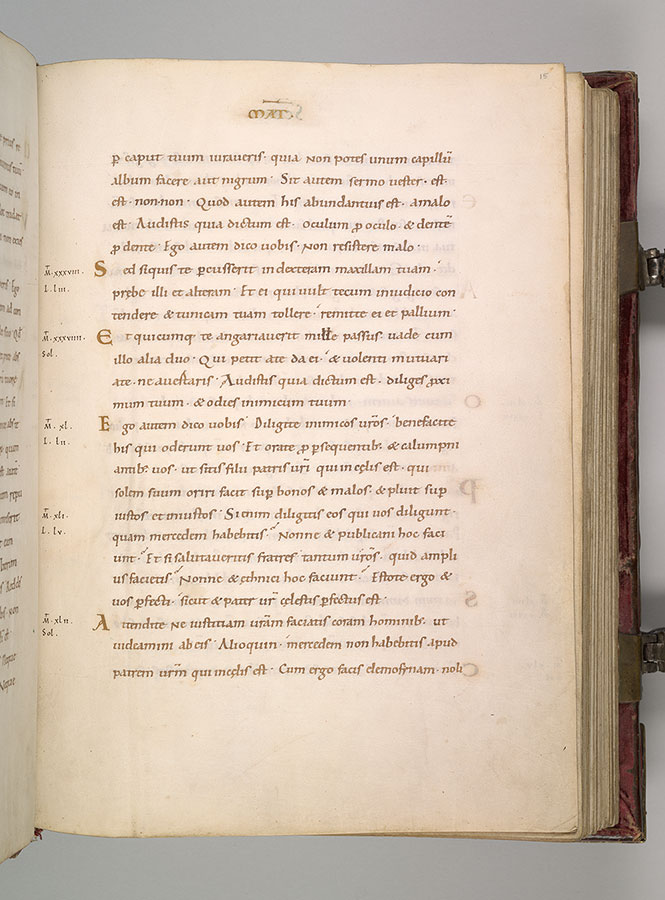 15
MAT
p caput tuum iuraveris · quia non potes unum capillū
album facere aut nigrum · Sit autem sermo uester · est ·
est · non · non · Quod autem his abundantius est · amalo
est · Audistis quia dictum est · oculum p oculo · & dentē
p dente · Ego autem dico uobis · Non resistere malo ·
M. xxxviii.
Sed siquis te pcusserit in dexteram maxillam tuam ·
L. liii.
prebe illi et alteram · Et ei qui uult tecum iniudicio con
tendere & tunicam tuam tollere · remitte ei et pallium ·
M. xxxviiii.
Et quicumq; te angariauerit mille passus · uade cum
Sol.
illo alia duo · Qui petit ate da ei · & uolenti mutuari
ate · ne auertaris · Audistis quia dictum est · diliges pxi
mum tuum · & odies inimicum tuum ·
M. xl.
Ego autem dico uobis · Diligite inimicos urōs · benefacite
L. lii.
his qui oderunt uos · Et orate p psequentib; & calumpni
antib; uos · ut sitis filii patris urī qui incęlis est · qui
solem suum oriri facit sup bonos & malos · & pluit sup
M. xli.
iustos et iniustos · Si enim diligitis eos qui uos diligunt ·
L. lv.
quam mercedem habebitis · Nonne & publicani hoc faci
unt · Et si salutaueritis fratres tantum urōs · quid ampli
us facietis · Nonne & ęthnici hoc faciunt · Estote ergo &
uos pfecti · sicut & pater ur̄ cęlestis pfectus est ·
M. xlii.
Attendite ne iustitiam urām faciatis coram hominib; ut
Sol.
uideamini ab eis · Alioquin · mercedem non habebitis apud
patrem urm̄ qui incęlis est · Cum ergo facis elemosynam · noli